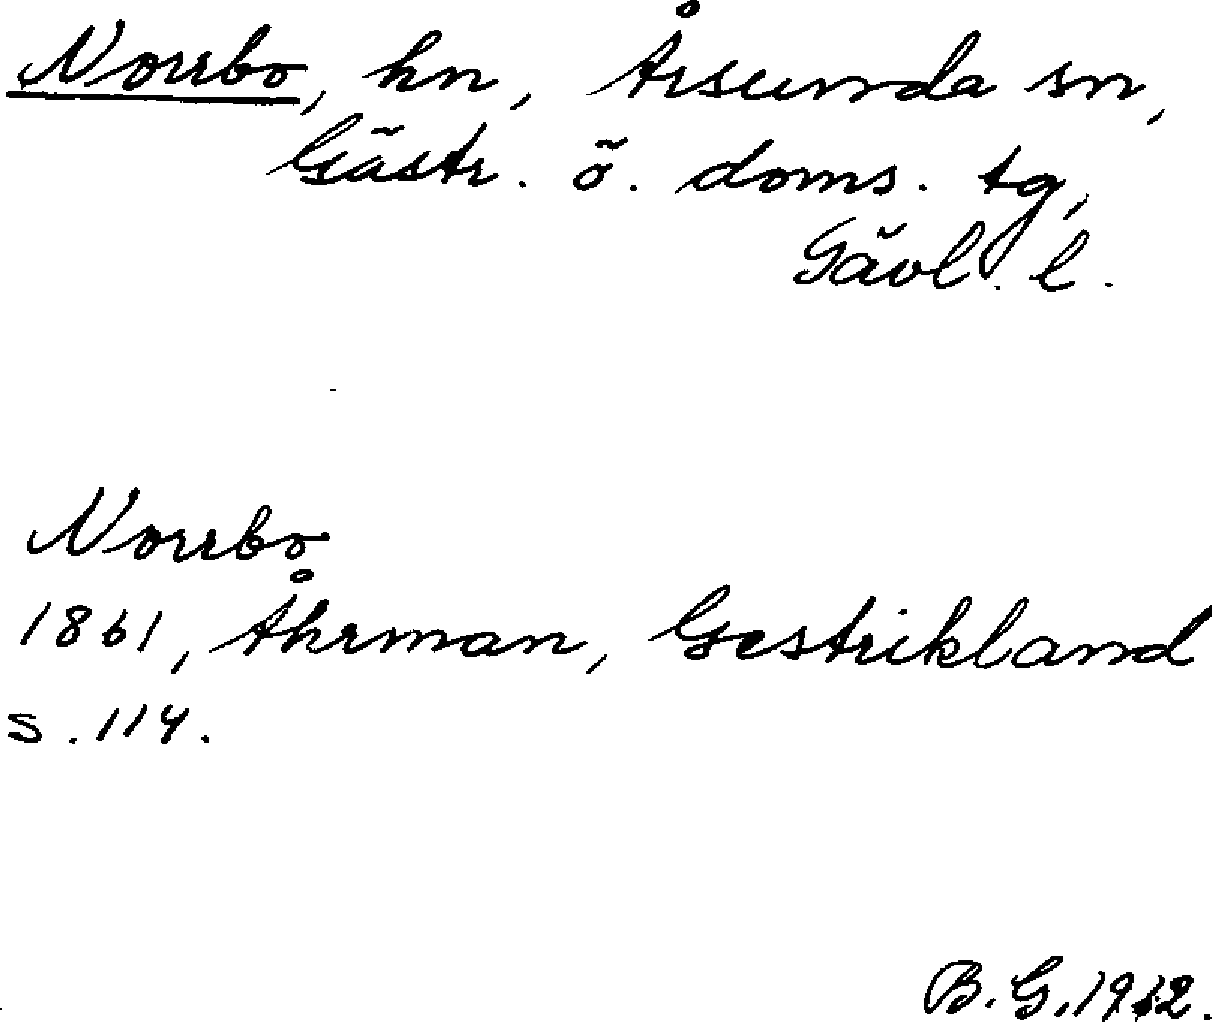 Norrbo, hn, Årsunda sn,
Gästr. ö. doms. tg,
Gävl. l.
Norrbo
1861, Åhrman, Gestrikland
s. 114.
B. G. 1912.